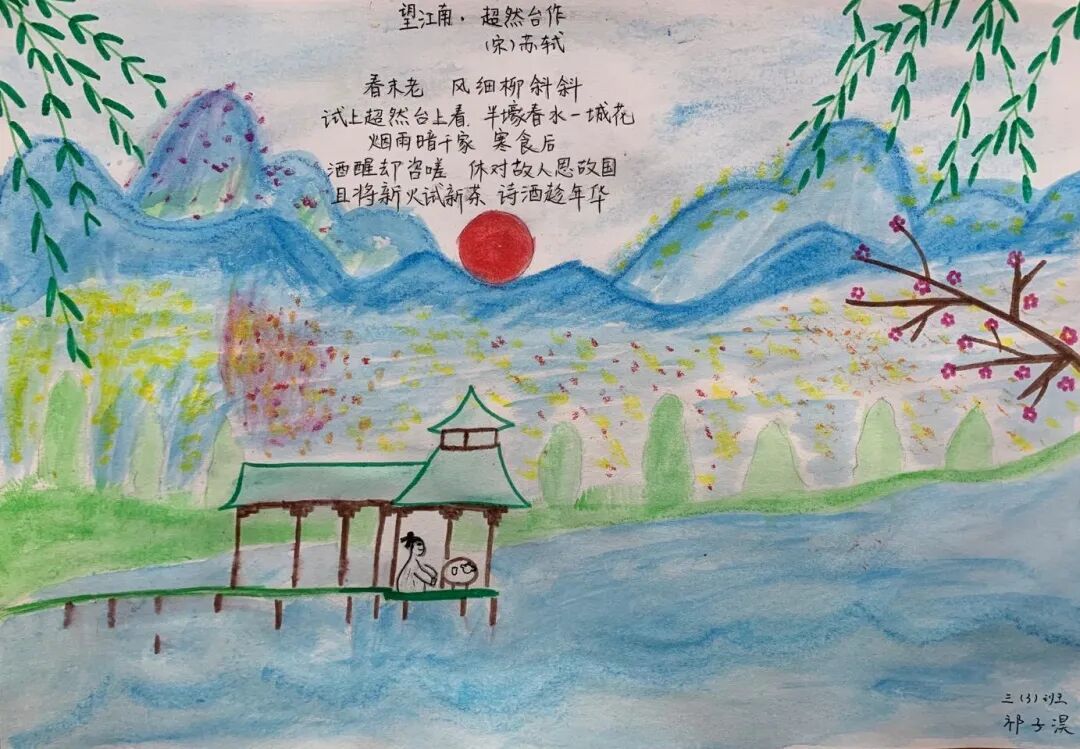 望江南·超然台作
(宋)苏轼
春未老 风细柳斜斜
试上超然台上看 半壕春水一城花
烟雨暗千家 寒食后
酒醒却咨嗟 休对故人思故国
且将新火试新茶 诗酒趁年华
三(3)班
祁子淏